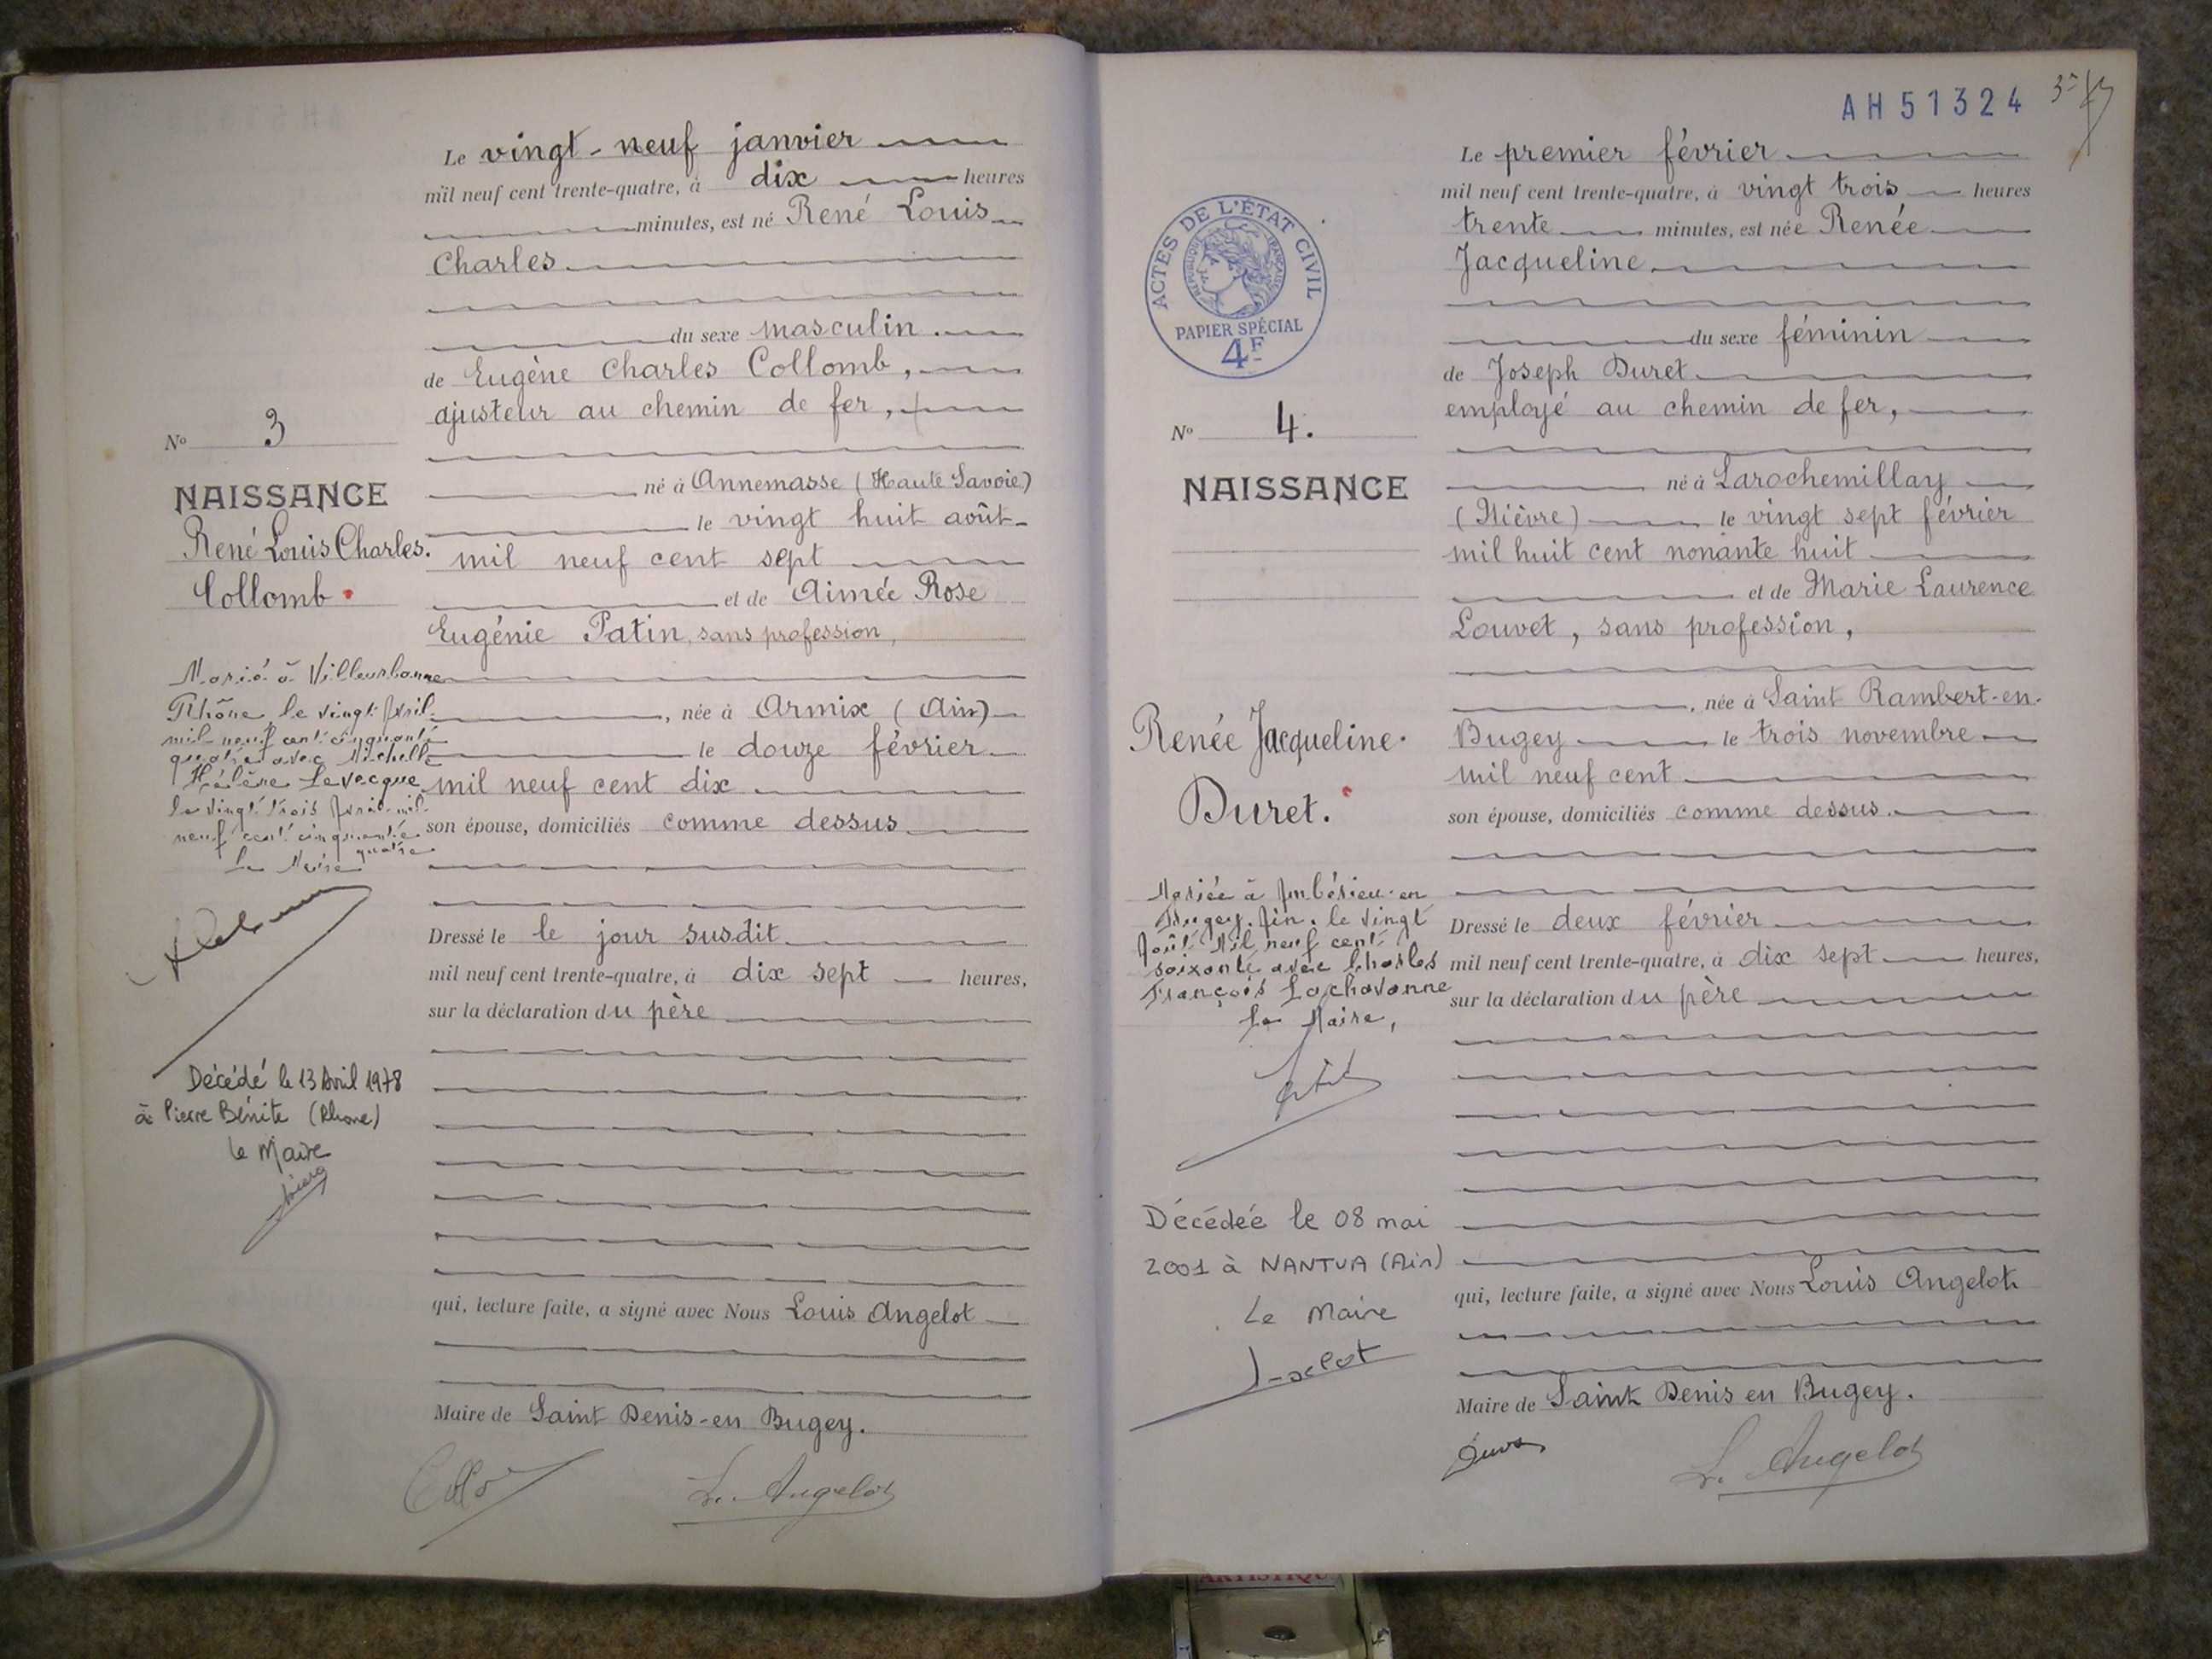 Le vingt-neuf janvier
mil neuf cent trente-quatre, à dix heures
minutes, est né René Louis
Charles
du sexe masculin.
de Eugène Charles Collomb,
ajusteur au chemin de fer,
né à Annemasse (Haute Savoie)
le vingt huit août
mil neuf cent sept
et de Aimée Rose
Eugénie Patin, sans profession,
, née à Armix (Ain)
le douze février
mil neuf cent dix
son épouse, domiciliés comme dessus
Dressé le le jour susdit
mil neuf cent trente-quatre, à dix sept heures,
sur la déclaration du père
qui, lecture faite, a signé avec Nous Louis Angelot
Maire de Saint Denis-en Bugey.
L. Angelot
No 3
NAISSANCE
René Louis Charles.
Collomb
Marié à Villeurbanne
Rhône, le vingt Avril
mil neuf cent cinquante
quatre avec Michelle
Hélène Levecque
le vingt trois Avril mil
neuf cent cinquante
quatre
Le Maire
Décédé le 13 Avril 1978
à Pierre Bénite (Rhone)
le Maire
AH 51324
ACTES DE L'ÉTAT CIVIL
RÉPUBLIQUE FRANÇAISE
PAPIER SPÉCIAL
4F
No 4.
NAISSANCE
Renée Jacqueline
Duret.
Mariée à Ambérieu-en
Bugey. Ain. le vingt
Août Mil neuf cent
soixante avec Charles
François Lachavanne
Le Maire,
Décédée le 08 mai
2001 à NANTUA (Ain)
Le Maire
Le premier février
mil neuf cent trente-quatre, à vingt trois heures
trente minutes, est née Renée
Jacqueline
du sexe féminin
de Joseph Duret
employé au chemin de fer,
né à Larochemillay
(Nièvre) le vingt sept février
mil huit cent nonante huit
et de Marie Laurence
Louvet, sans profession,
, née à Saint Rambert-en-
Bugey le trois novembre
mil neuf cent
son épouse, domiciliés comme dessus.
Dressé le deux février
mil neuf cent trente-quatre, à dix sept heures,
sur la déclaration du père
qui, lecture faite, a signé avec Nous Louis Angelot
Maire de Saint Denis en Bugey.
L. Angelot